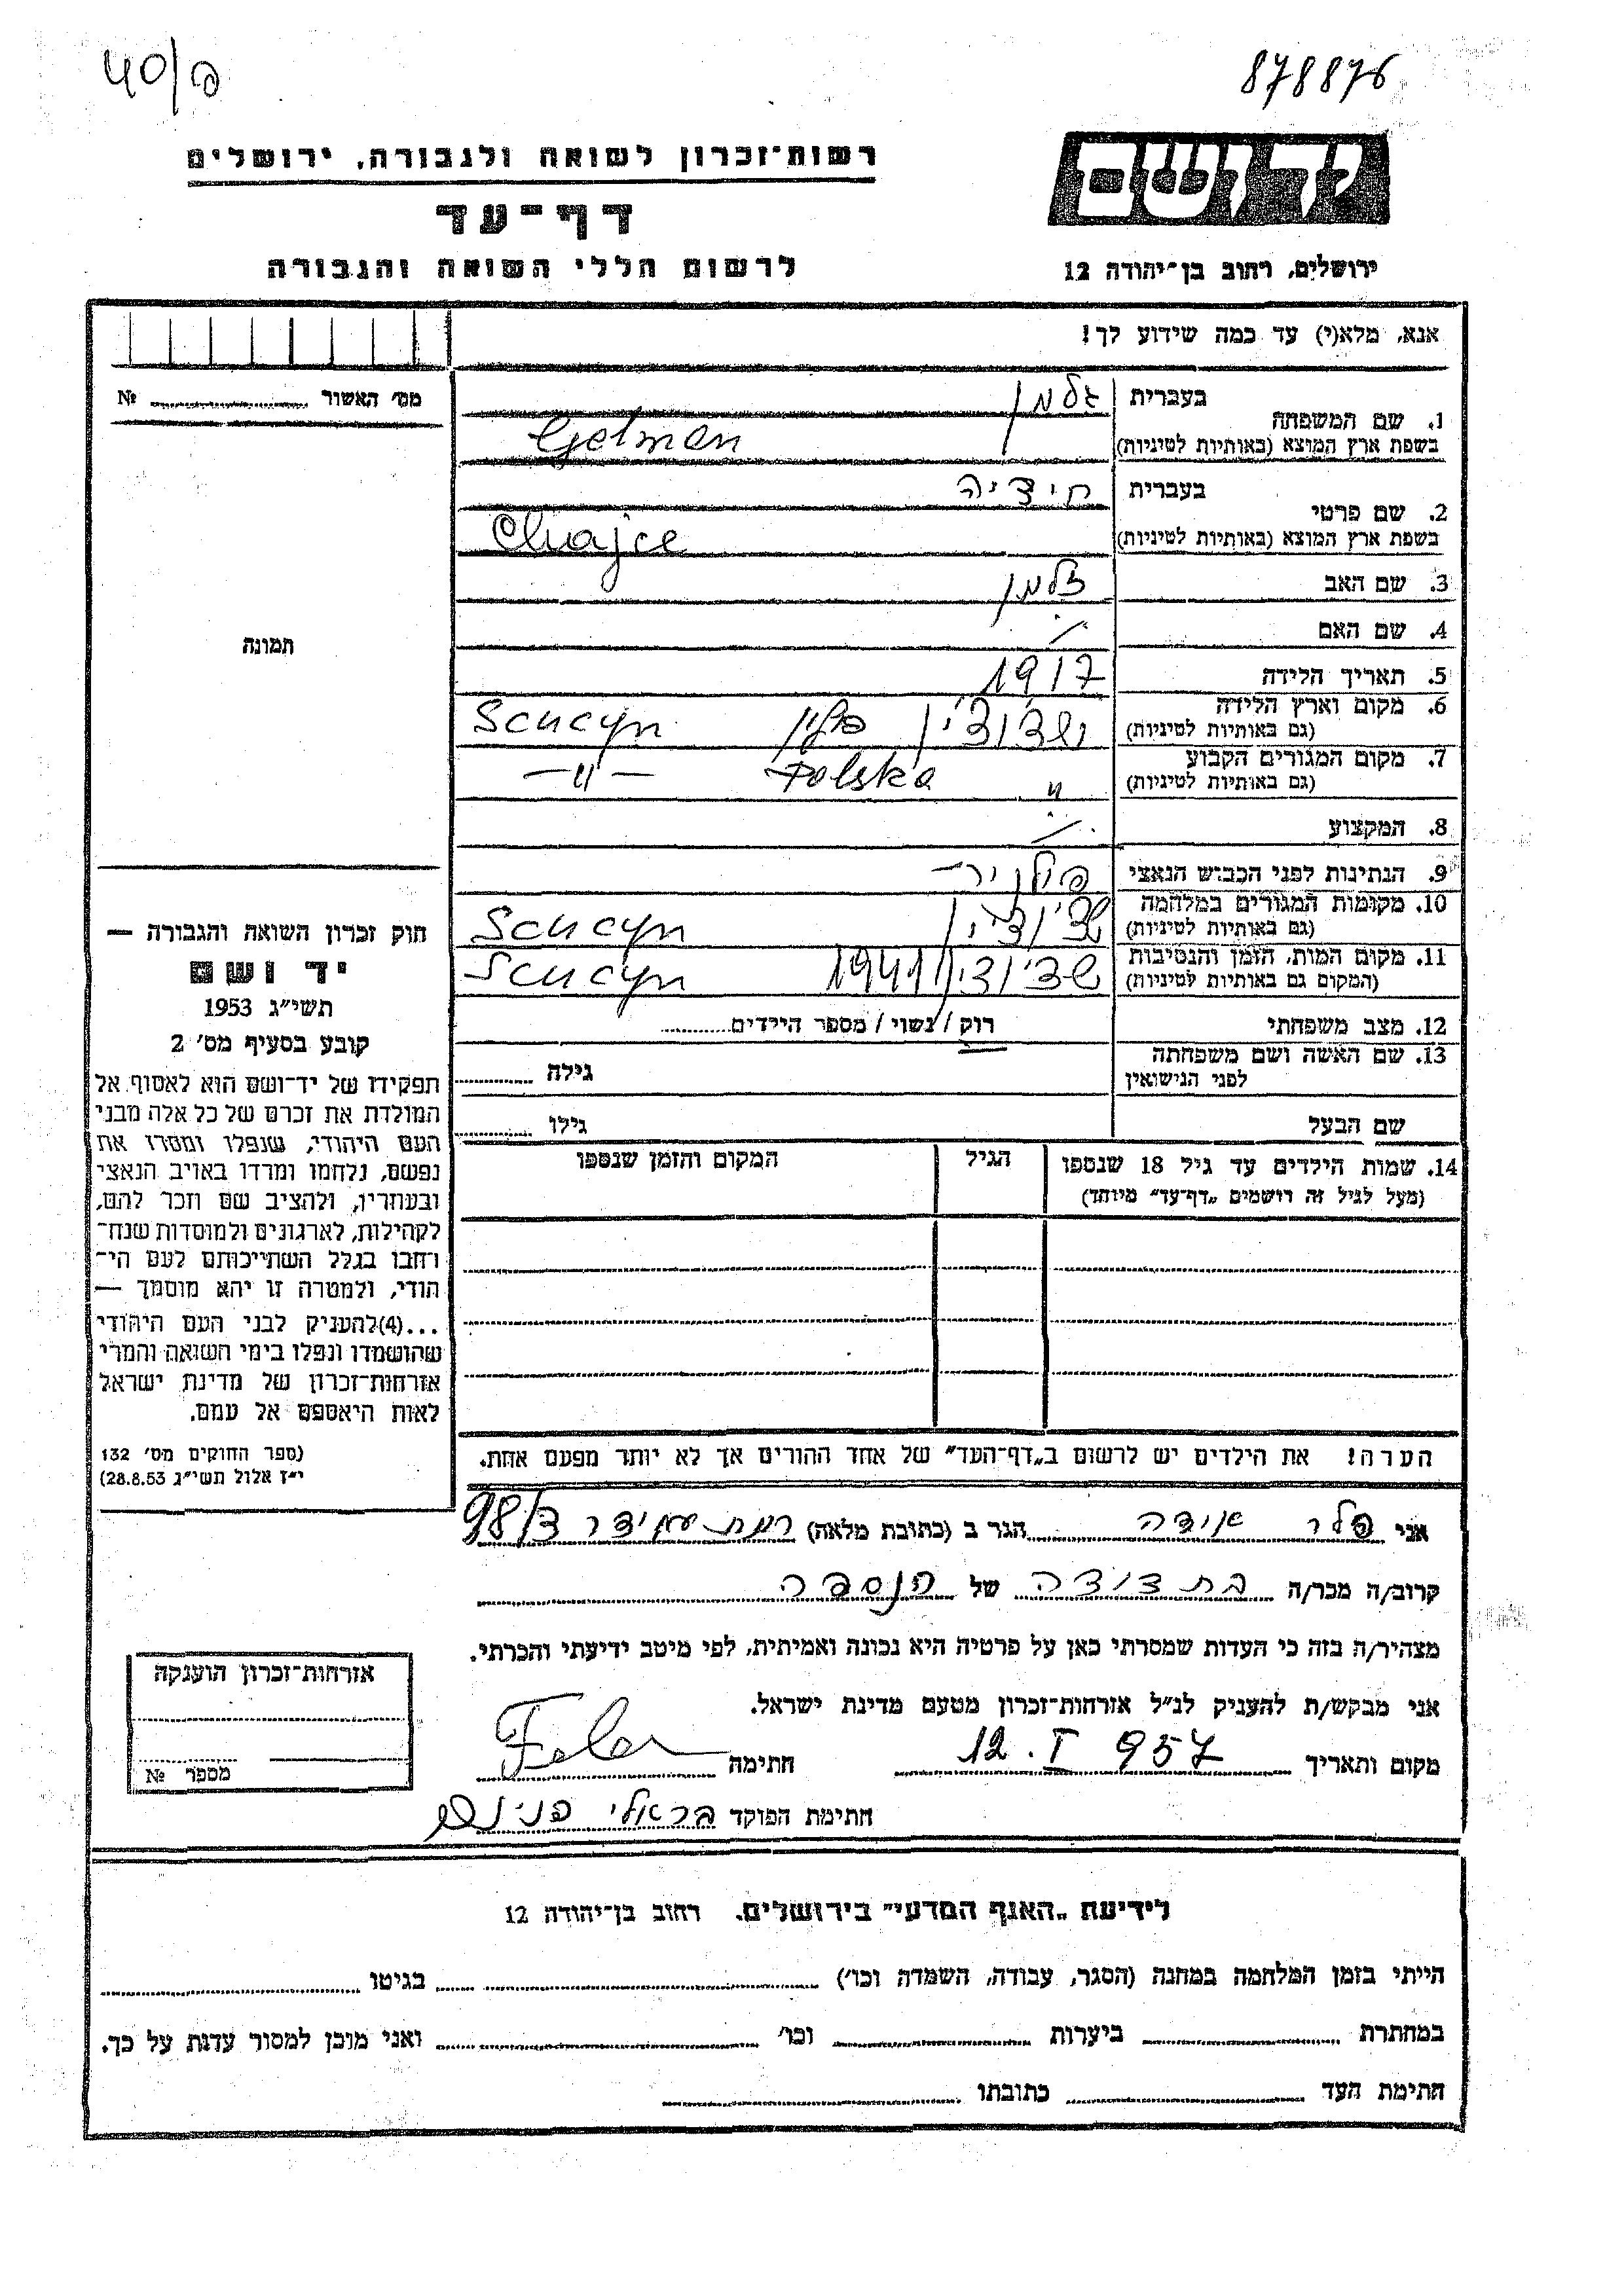 40/ם
878876
רשות־זכרון לשואה ולגבורה, ירושלים
יד ושם
דף־עד
לרשום חללי השואה והגבורה
ירושלים, רחוב בן־יהודה 12
אנא, מלא(י) עד כמה שידוע לך!
מס׳ האשור № 
1. שם המשפחה בעברית גלמן
בשפת ארץ המוצא (באותיות לטיניות) Gelman
2. שם פרטי בעברית חיציה
בשפת ארץ המוצא (באותיות לטיניות) Chajce
3. שם האב זלמן
4. שם האם
5. תאריך הלידה 1917
6. מקום וארץ הלידה (גם באותיות לטיניות) שצ׳וצ׳ין פולין Scucyn
7. מקום המגורים הקבוע (גם באותיות לטיניות) " Polska —"—
8. המקצוע
9. הנתינות לפני הכבוש הנאצי פולנית
10. מקומות המגורים במלחמה (גם באותיות לטיניות) שצ׳וצ׳ין Scucyn
11. מקום המות, הזמן והנסיבות (המקום גם באותיות לטיניות) שצ׳וצ׳ין 1941 Scucyn
12. מצב משפחתי רוק / נשוי / מספר הילדים
13. שם האשה ושם משפחתה לפני הנישואין גילה
שם הבעל גילו
14. שמות הילדים עד גיל 18 שנספו הגיל המקום והזמן שנספו
(מעל לגיל זה רושמים „דף־עד״ מיוחד)
הערה! את הילדים יש לרשום ב„דף־העד״ של אחד ההורים אך לא יותר מפעם אחת.
תמונה
חוק זכרון השואה והגבורה —
יד ושם
תשי״ג 1953
קובע בסעיף מס׳ 2
תפקידו של יד־ושם הוא לאסוף אל
המולדת את זכרם של כל אלה מבני
העם היהודי, שנפלו ומסרו את
נפשם, נלחמו ומרדו באויב הנאצי
ובעוזריו, ולהציב שם וזכר להם,
לקהילות, לארגונים ולמוסדות שנח־
רחבו בגלל השתייכותם לעם הי־
הודי, ולמטרה זו יהא מוסמך —
...(4)להעניק לבני העם היהודי
שהושמדו ונפלו בימי השואה והמרי
אזרחות־זכרון של מדינת ישראל
לאות היאספם אל עמם.
(ספר החוקים מס׳ 132
י״ז אלול תשי״ג 28.8.53)
אני פלר אידה הגר ב (כתובת מלאה) רמת עמידר צ/98
קרוב/ה מכר/ה בת דודה של הנספה
מצהיר/ה בזה כי העדות שמסרתי כאן על פרטיה היא נכונה ואמיתית, לפי מיטב ידיעתי והכרתי.
אני מבקש/ת להעניק לנ״ל אזרחות־זכרון מטעם מדינת ישראל.
מקום ותאריך 12. I 957 חתימה Feler
חתימת הפוקד בראלי פנינה
אזרחות־זכרון הוענקה
מספר №
לידיעת „האגף המדעי״ בירושלים, רחוב בן־יהודה 12
הייתי בזמן המלחמה במחנה (הסגר, עבודה, השמדה וכו׳) בגיטו
במחתרת ביערות וכו׳ ואני מוכן למסור עדות על כך.
חתימת העד כתובתו